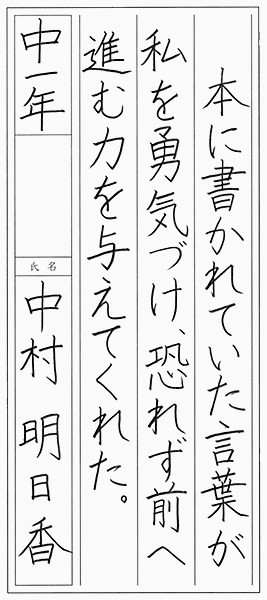 本に書かれていた言葉が
私を勇気づけ、恐れず前へ
進む力を与えてくれた。
中一年
氏名
中村 明日香